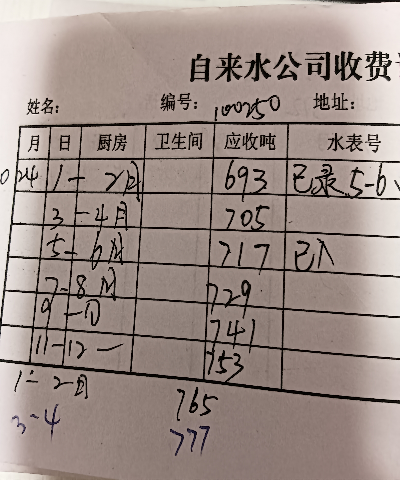 自来水公司收费
姓名: 编号: 100250 地址:
月 日 厨房 卫生间 应收吨 水表号
024 1-2月 693 已录5-6
3-4月 705
5-6月 717 已入
7-8月 729
9-10 741
11-12- 753
1-2月 765
3-4 777